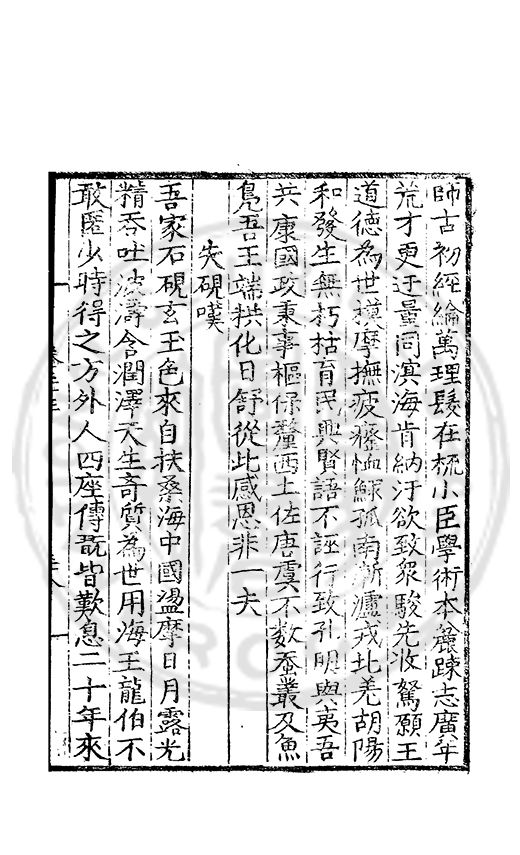 師古初經綸萬理髮在梳小臣學術本麄踈志廣年
荒才更迂量同溟海肯納汙欲致衆駿先收駑願王
道德為世模摩撫疲癃恤鰥孤南漸瀘戎北羌胡陽
和發生無朽枯育民興賢語不誣行致孔明與夷吾
共康國政秉事樞保釐西土佐唐虞不数蚕叢及魚
鳧吾王端拱化日舒從此感恩非一夫
失硯嘆
吾家石硯玄玉色來自扶桑海中國盪摩日月露光
精吞吐波濤含潤澤天生奇質為世用海王龍伯不
敢匿少時得之方外人四座傳翫皆歎息二十年來